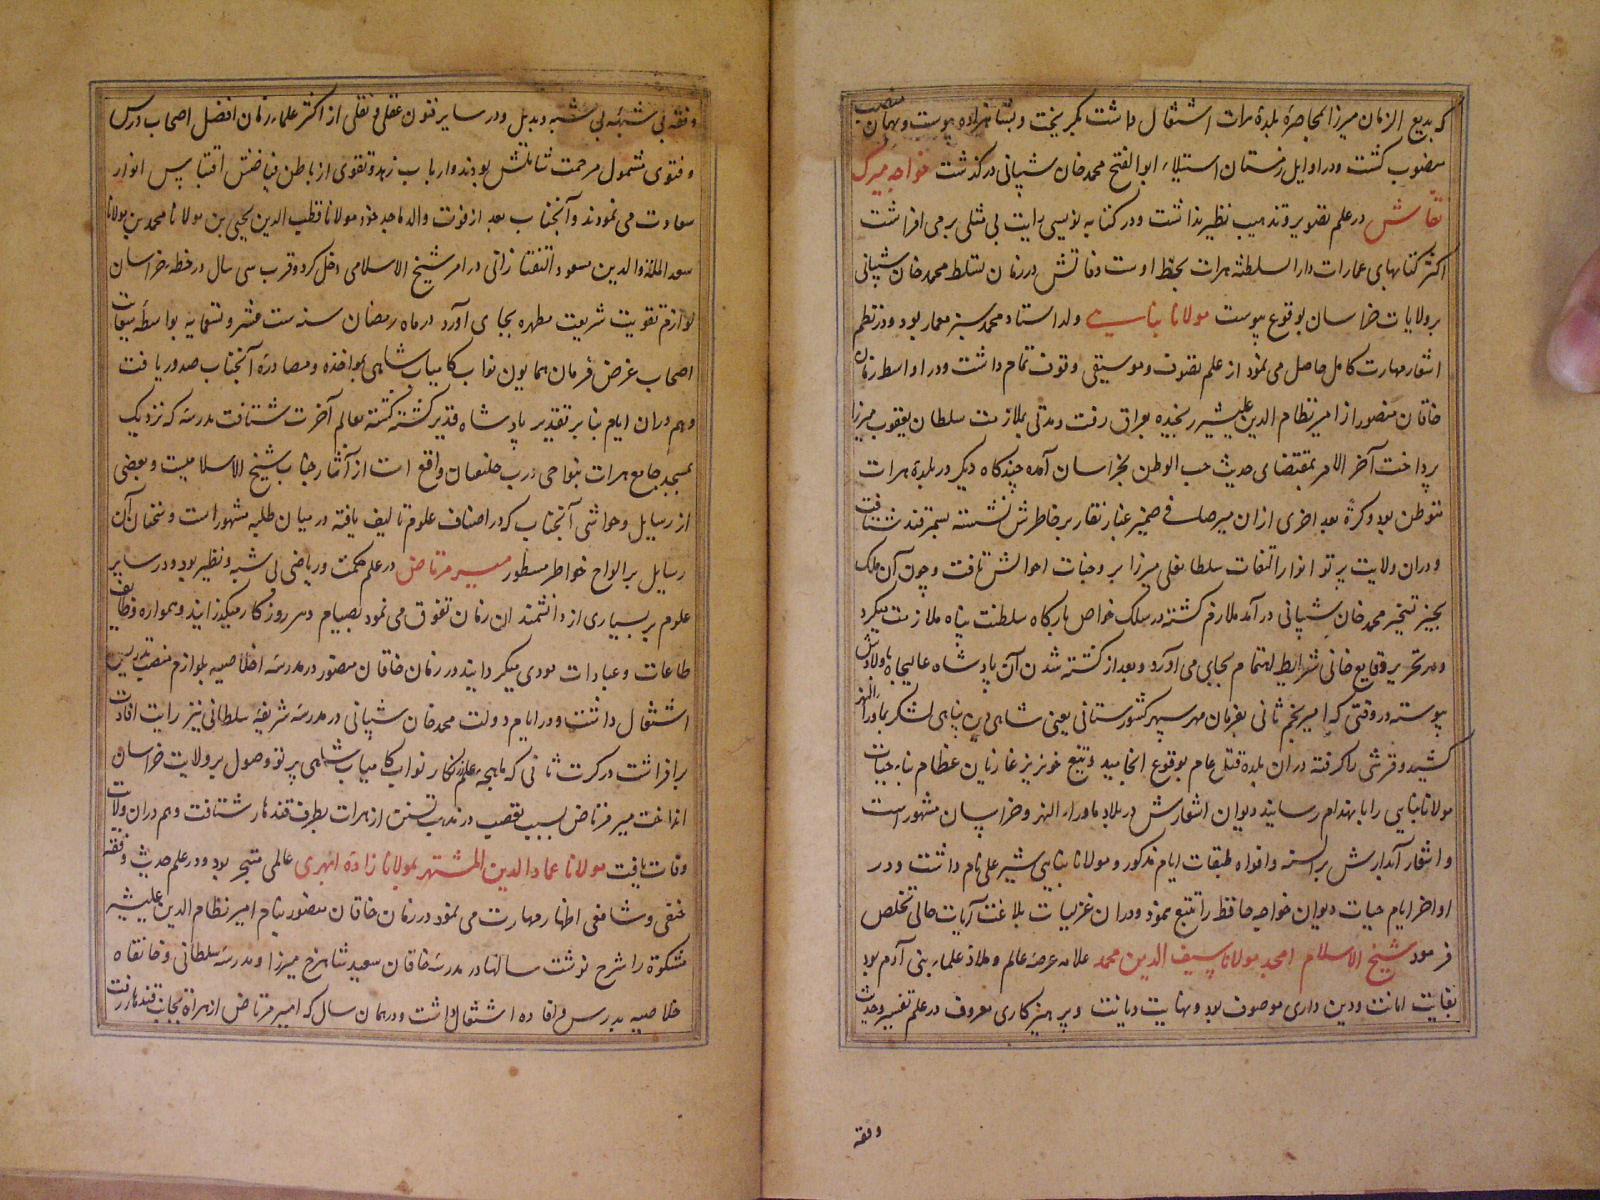 که بدیع الزمان میرزا بمحاصرهٔ بلدهٔ هرات اشتغال داشت کمر بخت و بشاهزاده پیوست و بهمان منصب
منصوب گشت و در اوایل زمستان استیلاء ابو الفتح محمد خان شیبانی در گذشت خواجه میرک
نقاش در علم تصویر و تذهیب نظیر نداشت و در کتابه نویسی رایت بی مثلی بر می افراشت
اکثر کتابهای عمارات دار السلطنه هرات بخط اوست وفاتش در زمان تسلط محمد خان شیبانی
بر ولایات خراسان بوقوع پیوست مولانا بنایی ولد استاد محمد سبز معمار بود و در نظم
اشعار مهارت کامل حاصل می نمود از علم تصوف و موسیقی وقوف تمام داشت و در اواسط زمان
خاقان منصور از امیر نظام الدین علیشیر رنجیده بعراق رفت و مدتی بملازمت سلطان یعقوب میرزا
پرداخت آخر الامر بمقتضای حدیث حب الوطن بخراسان آمده چند گاه دیگر در بلدهٔ هرات
متوطن بود و کرة بعد اخری ازان میر صافی ضمیر غبار نقار بر خاطرش نشسته بسمرقند شتافت
و دران ولایت پرتو انوار التفات سلطانعلی میرزا بر وجنات احوالش تافت و چون آن ملک
بحیز تسخیر محمد خان شیبانی در آمد ملا رقم گشته در سلک خواص بارگاه سلطنت پناه ملازمت میکرد
و در تحریر وقایع خانی شرایط اهتمام بجای می آورد و بعد از کشته شدن آن پادشاه عالیجاه باولادش
پیوسته در وقتی که امیر نجم ثانی بفرمان مهر سپهر کشورستانی یعنی شاهی دین پناهی لشکر بماوراء النهر
کشید و قرشی را گرفته دران بلده قتل عام بوقوع انجامید و تیغ خونریز غازیان عظام بناء حیات
مولانا بنایی را بانهدام رسانید دیوان اشعارش در بلاد ماوراء النهر و خراسان مشهور است
و اشعار آبدارش بر السنه و افواه طبقات ایام مذکور و مولانا بنایی شیر علی نام داشت و در
اواخر ایام حیات دیوان خواجه حافظ را تتبع نمود و دران غزلیات بلاغت آیات حالی تخلص
فرمود شیخ الاسلام امجد مولانا سیف الدین محمد علامه عرصهٔ عالم و ملاذ علماء بنی آدم بود
بغایت امانت و دین داری موصوف بود و نهایت دیانت و پرهیز کاری معروف در علم تفسیر و حدیث
وفقه
وفقه بی شبهٔ بی شبه و بدیل و در سایر فنون عقلی و نقلی از اکثر علماء زمان افضل اصحاب درس
و فتوی مشمول مرحمت شاملش بودند و ارباب زهد و تقوی از باطن فیاضش اقتباس انوار
سعادت می نمودند و آنجناب بعد از فوت والد ماجد خود مولانا قطب الدین یحیی بن مولانا محمد بن مولانا
سعد الملة و الدین مسعود التفتازانی در امر شیخ الاسلامی دخل کرد و قرب سی سال در خطه خراسان
لوازم تقویت شریعت مطهره بجای آورد در ماه رمضان سنه ست عشر و تسعمایه بواسطه سعایت
اصحاب غرض فرمان همایون نواب کامیاب شاهی بمواخذه و مصادرهٔ آنجناب صدور یافت
و هم دران ایام بنا بر تقدیر پادشاه قدیر کشته گشته بعالم آخرت شتافت مدرسه که نزدیک
بمسجد جامع هرات بنواحی درب واقع است از آثار جناب شیخ الاسلامیست و بعضی
از رسایل و حواشی آنجناب که در اصناف علوم تالیف یافته در میان طلبه مشهور است و سخنان آن
رسایل بر الواح خواطر مسطور میر مرتاض در علم حکمت و ریاضی بی شبه و نظیر بود و در سایر
علوم بر بسیاری از دانشمندان زمان تفوق می نمود بصیام دهر روزگار میگذرانید و همواره وظایف
طاعات و عبادات مودی میگردانید در زمان خاقان منصور در مدرسه اخلاصیه بلوازم منصب تدریس
اشتغال داشت و در ایام دولت محمد خان شیبانی در مدرسه شریفهٔ سلطانی نیز رایت افادت
بر افراشت در کرت ثانی که ماهیچه علم زرنگار نواب کامیاب شاهی پرتو وصول بر ولایت خراسان
انداخت میر مرتاض بسبب تعصب در مذهب تسنن از هرات بطرف قندهار شتافت و هم دران ولایت
وفات یافت مولانا عماد الدین المشتهر بمولانا زاده ابهری عالمی متبحر بود و در علم حدیث و فقه
حنفی و شافعی اظهار مهارت می نمود در زمان خاقان منصور بنام امیر نظام الدین علیشیر
مشکوة را شرح نوشت سالها در مدرسه خاقان سعید شاهرخ میرزا و مدرسه سلطانی و خانقاه
خلاصیه بدرس و افاده اشتغال داشت و در همان سال که امیر مرتاض از هراة بجانب قندهار رفت